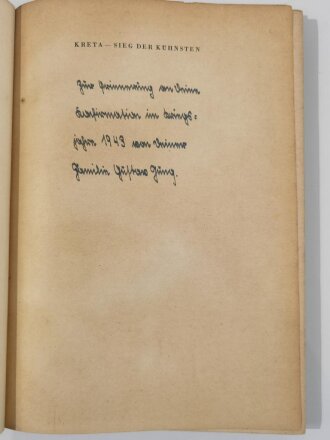 KRETA — SIEG DER KÜHNSTEN
Zur Erinnerung an Deine
Konfirmation im Kriegs-
jahre 1943 von Deiner
Familie Gustav Jung.